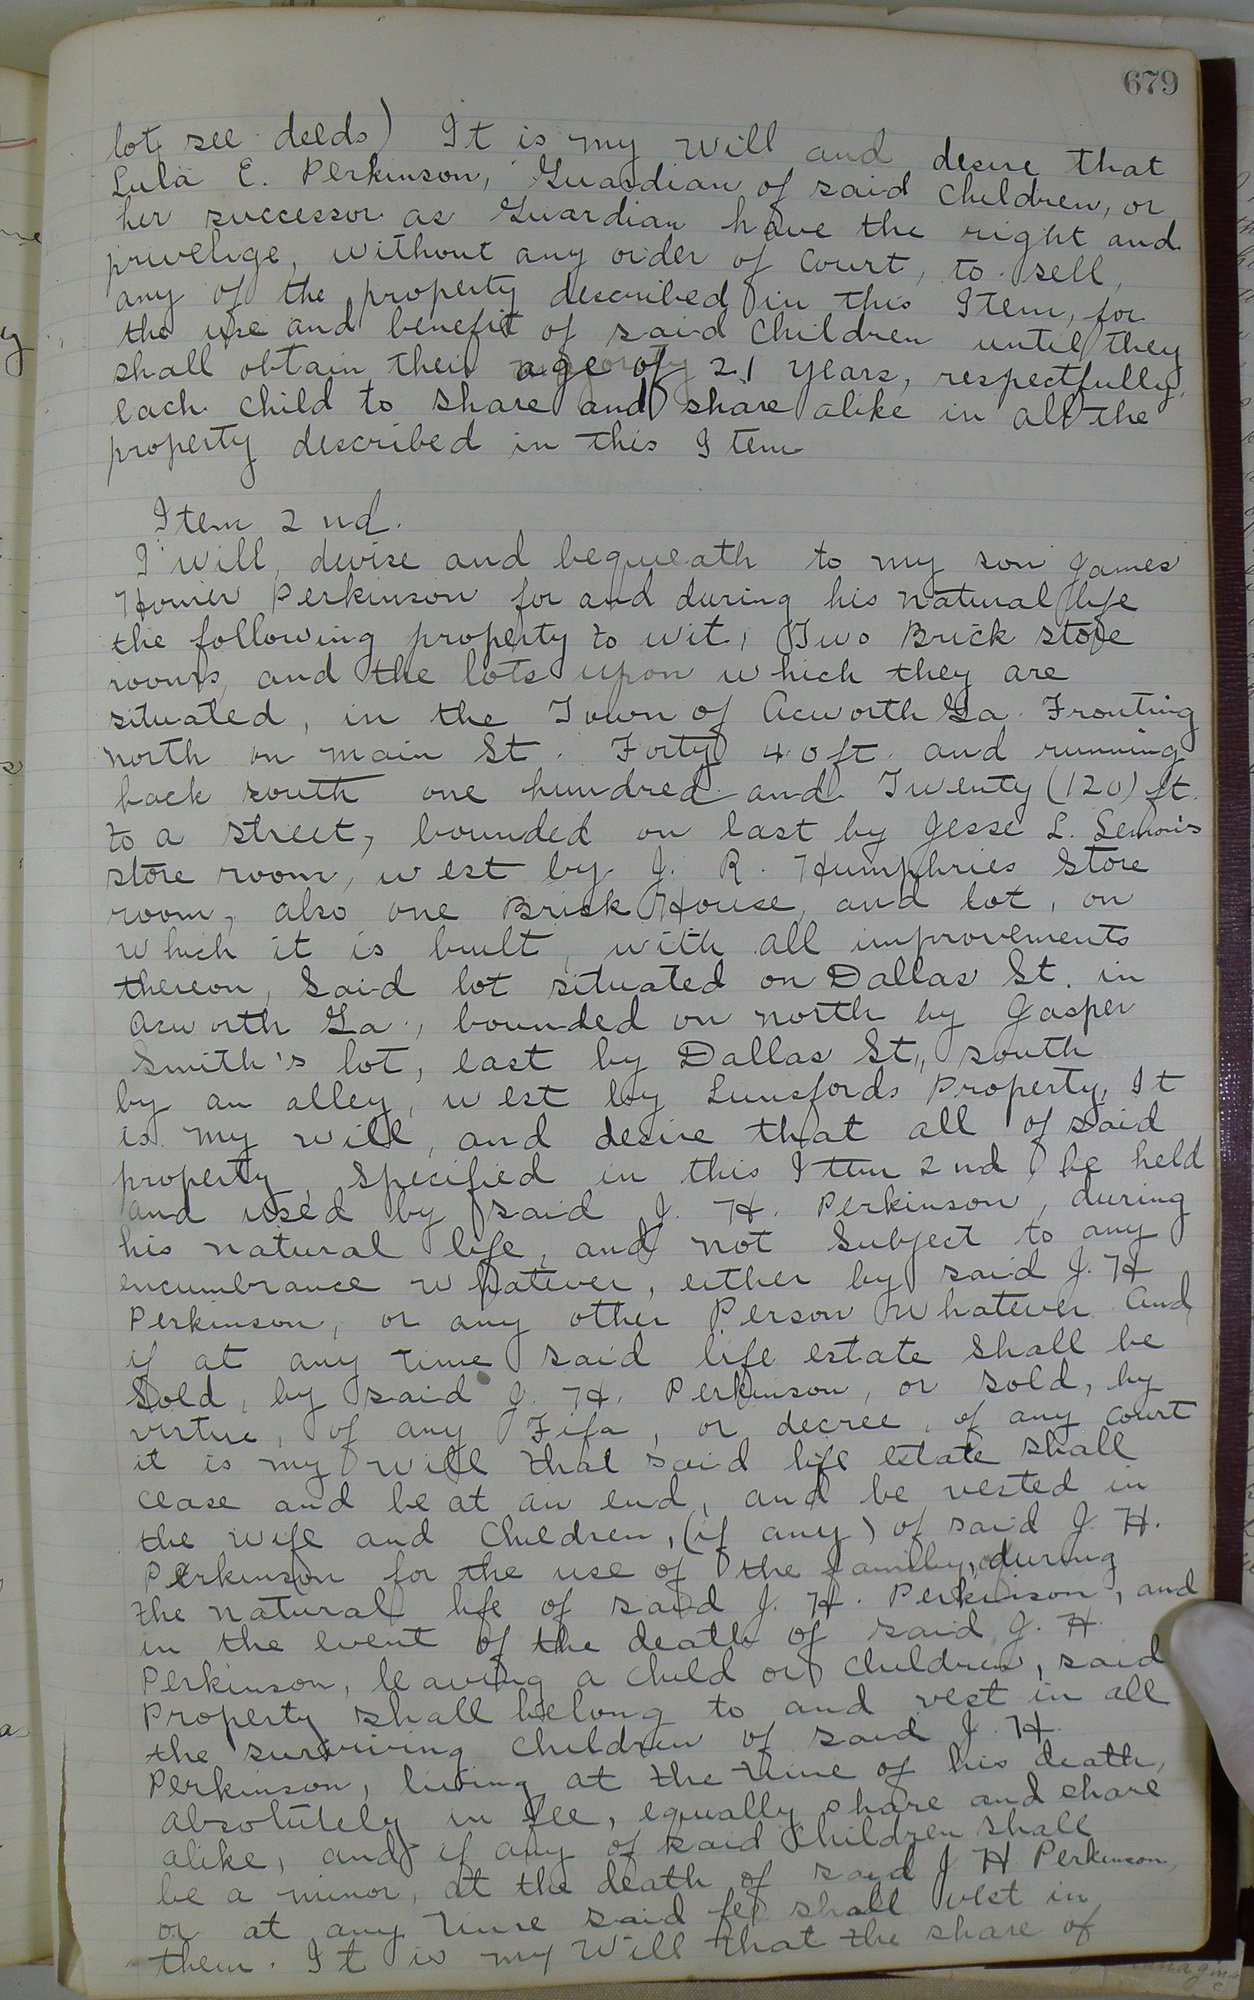 679
lot, see deeds) It is my will and desire that
Lula E. Perkinson, Guardian of said Children, or
her successor as Guardian have the right and
privelige, without any order of Court, to sell,
any of the property described in this Item, for
the use and benefit of said Children until they
shall obtain their age of 21 years, respectfully,
each child to share and share alike in all the
property described in this Item
Item 2nd.
I will, devise and bequeath to my son James
Homer Perkinson for and during his natural life
the following property to wit, Two Brick store
rooms, and the lots upon which they are
situated, in the Town of Acworth Ga. Fronting
north on main St. Forty 40 ft. and running
back south one hundred and Twenty (120) ft.
to a street, bounded on east by Jesse L. Lemon's
store room, west by J. R. Humphries Store
room, also one Brick House, and lot, on
which it is built, with all improvements
thereon, Said lot situated on Dallas St. in
Acworth Ga., bounded on north by Gasper
Smith's lot, east by Dallas St., south
by an alley, west by Lunsfords Property, It
is my will, and desire that all of said
property, specified in this Item 2nd be held
and used by said J. H. Perkinson, during
his natural life, and not Subject to any
encumbrance whatever, either by said J. H
Perkinson, or any other Person whatever. And
if at any time said life estate Shall be
Sold, by said J. H. Perkinson, or sold, by
virtue, of any Fifa, or decree, of any Court
it is my will that said life estate shall
cease and be at an end, and be vested in
the wife and Children, (if any) of said J. H.
Perkinson for the use of the family, during
the natural life of said J. H. Perkinson, and
in the event of the death of said J. H.
Perkinson, leaving a child or children, said
Property shall belong to and vest in all
the surviving Children of said J. H.
Perkinson, living at the time of his death,
absolutely in fee, equally share and share
alike, and if any of said Children shall
be a minor, at the death of said J H Perkinson,
or at any time said fee shall vest in
them. It is my Will that the share of